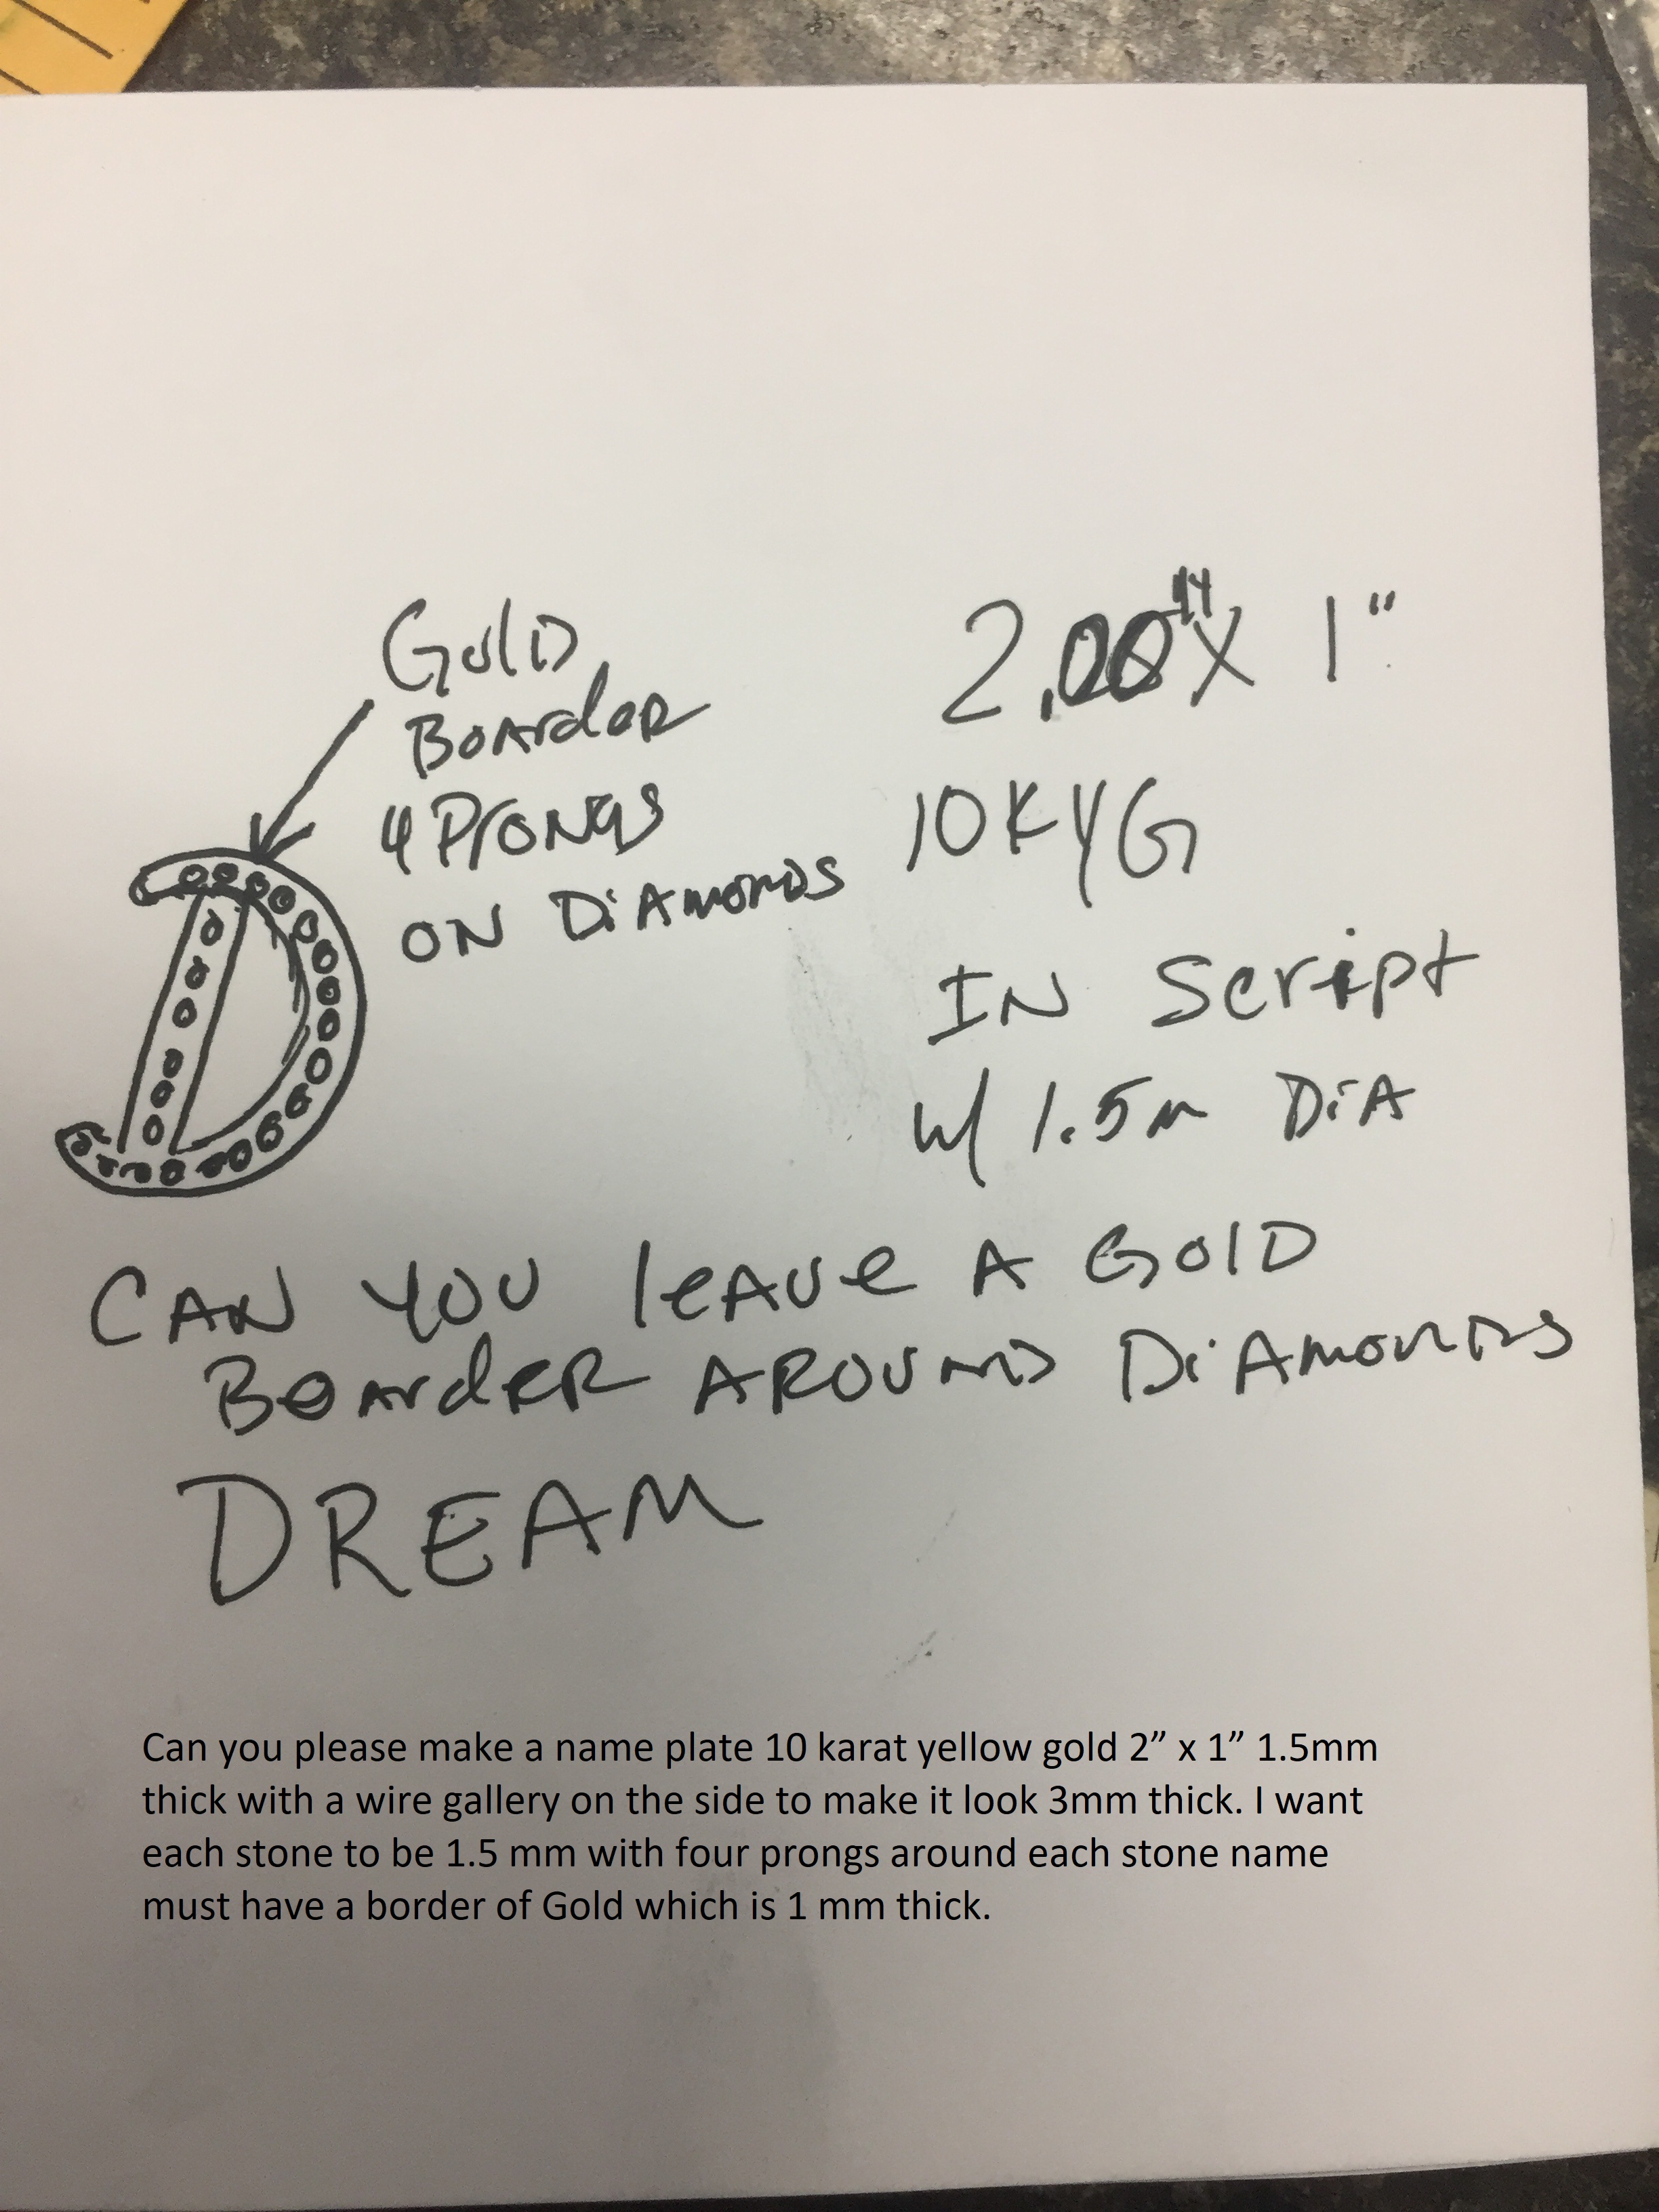 GOLD
BOARDER
4 PRONGS
ON DIAMONDS
2.00" X 1"
10KYG
IN Script
w/ 1.5m DIA
CAN YOU leave A GOLD
BOARDER AROUND DIAMONDS
DREAM
Can you please make a name plate 10 karat yellow gold 2” x 1” 1.5mm
thick with a wire gallery on the side to make it look 3mm thick. I want
each stone to be 1.5 mm with four prongs around each stone name
must have a border of Gold which is 1 mm thick.